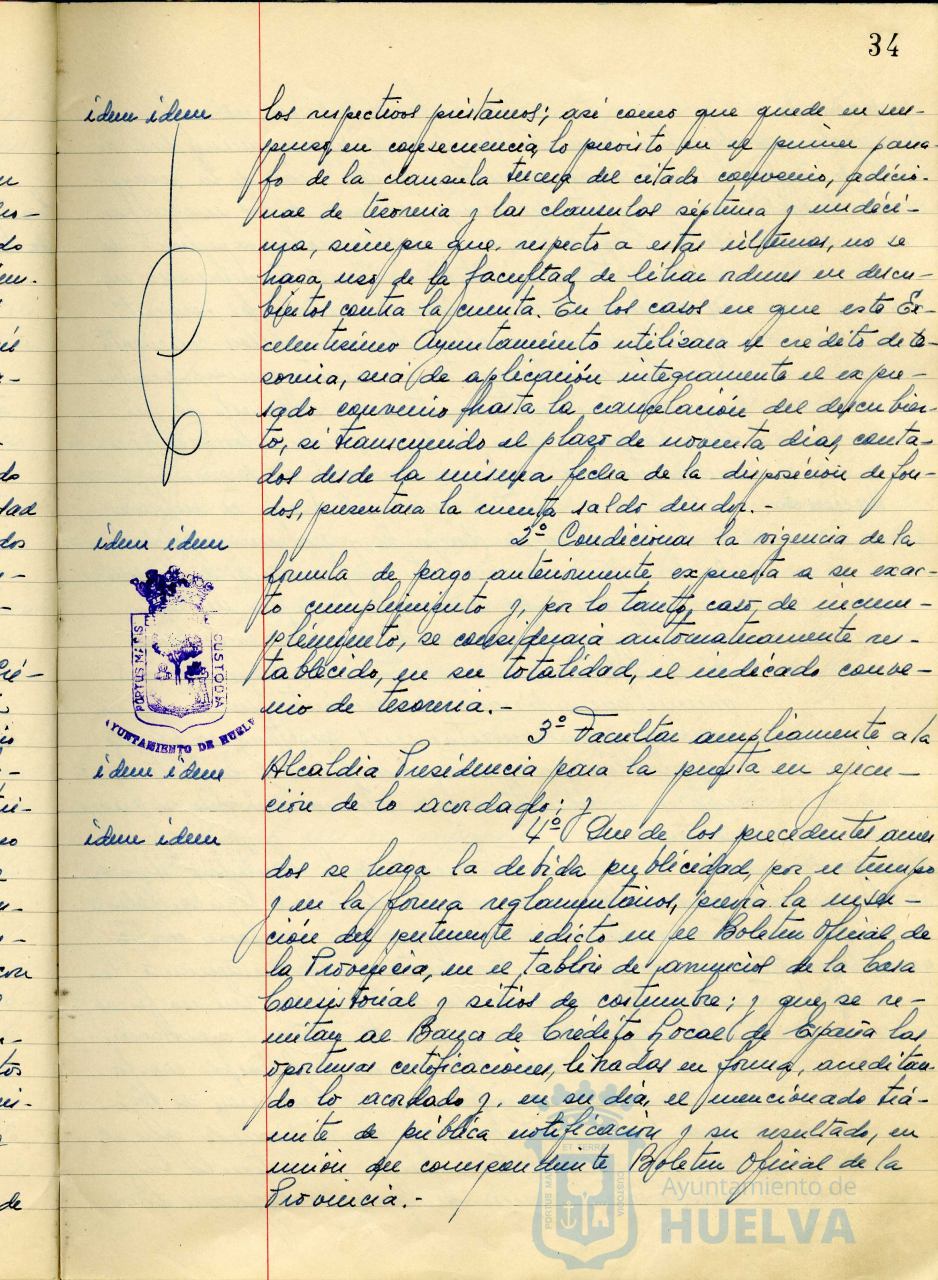 34
idem idem
los respectivos préstamos; así como que quede en sus-
penso, en consecuencia, lo previsto en el primer parra-
fo de la clausula tercera del citado convenio, adicio-
nal de tesoreria y las clausulas séptima y undéci-
ma, siempre que, respecto a estas últimas, no se
haga uso de la facultad de librar ordenes en descu-
biertos contra la cuenta. En los casos en que este Ex-
celentísimo Ayuntamiento utilizara el crédito de te-
soreria, será de aplicación integramente el expre-
sado convenio hasta la cancelación del descubier-
to, si transcurrido el plazo de noventa dias, conta-
dos desde la misma fecha de la disposición de fon-
dos, presentara la cuenta saldo deudor.-
idem idem
2º Condicionar la vigencia de la
formula de pago anteriormente expuesta a su exac-
to cumplimiento y, por lo tanto, caso de incum-
plimiento, se considerará automaticamente res-
tablecido, en su totalidad, el indicado conve-
nio de tesoreria.-
PORTUS MARIS
CUSTODIA
AYUNTAMIENTO DE HUELVA
3º Facultar ampliamente a la
idem idem
Alcaldia Presidencia para la puesta en ejecu-
ción de lo acordado; y
idem idem
4º Que de los precedentes acuer
dos se haga la debida publicidad, por el tiempo
y en la forma reglamentarios, previa la inser-
ción del pertinente edicto en el Boletin Oficial de
la Provincia, en el tablón de anuncios de la Casa
Consistorial y sitios de costumbre; y que se re-
mitan al Banco de Crédito Local de España las
oportunas certificaciones, libradas en forma, acreditan-
do lo acordado y, en su dia, el mencionado trá-
mite de pública notificación y su resultado, en
unión del correspondiente Boletin Oficial de la
Provincia.-
Ayuntamiento de
HUELVA